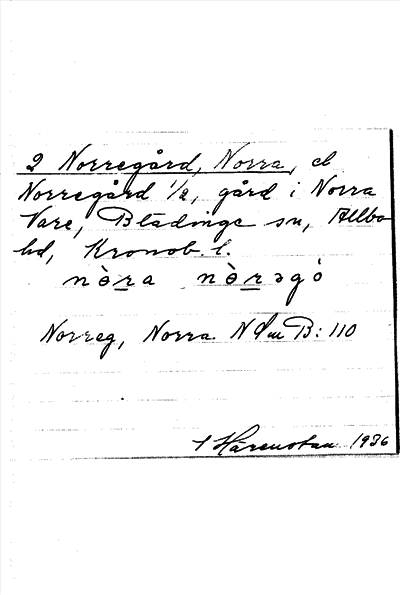 2 Norregård, Norra, el
Norregård 1/2, gård i Norra
Vare, Blädinge sn, Allbo
hd, Kronob. l.
nὰra nὰrəgó
Norreg, Norra. N B: 110
1936